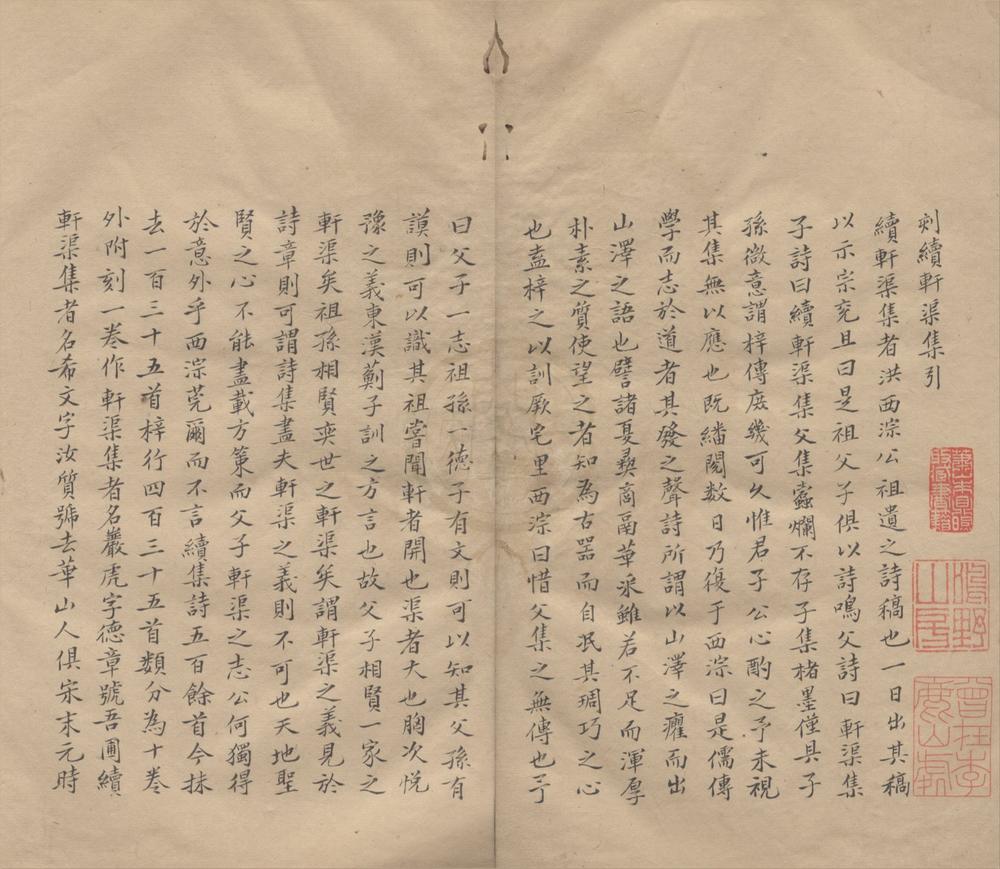 刻續軒渠集引
續軒渠集者洪西淙公祖遺之詩稿也一日出其稿
以示宗兗且曰是祖父子俱以詩鳴父詩曰軒渠集
子詩曰續軒渠集父集蠹爛不存子集楮墨僅具子
孫微意謂梓傳庻幾可久惟君子公心酌之予未視
其集無以應也既繙閱数日乃復于西淙曰是儒傳
學而志於道者其發之聲詩所謂以山澤之癯而出
山澤之語也譬諸夏彛商鬲華采雖若不足而渾厚
朴素之質使望之者知為古器而自泯其琱巧之心
也盍梓之以訓厥宅里西淙曰惜父集之無傳也予
曰父子一志祖孫一德子有文則可以知其父孫有
謨則可以識其祖嘗聞軒者開也渠者大也胸次悅
豫之義東漢薊子訓之方言也故父子相賢一家之
軒渠矣祖孫相賢奕世之軒渠矣謂軒渠之義見於
詩章則可謂詩集盡夫軒渠之義則不可也天地聖
賢之心不能盡載方策而父子軒渠之志公何獨得
於意外乎西淙莞爾而不言續集詩五百餘首今抹
去一百三十五首梓行四百三十五首類分為十卷
外附刻一卷作軒渠集者名巖虎字德章號吾圃續
軒渠集者名希文字汝質號去華山人俱宋末元時